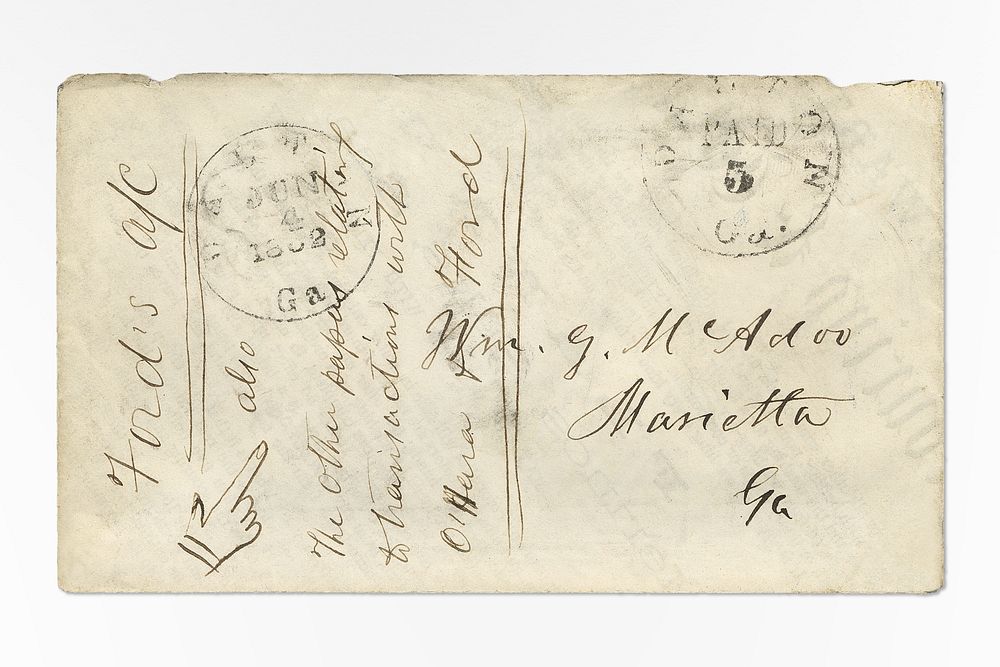 DALTON
PAID
5
Ga.
DALTON
JUN
4
1862
Ga
Wm. G. McAdoo
Marietta
Ga
Ford's a/c
also
The other papers relating
to transactions with
O'Hara & Ford